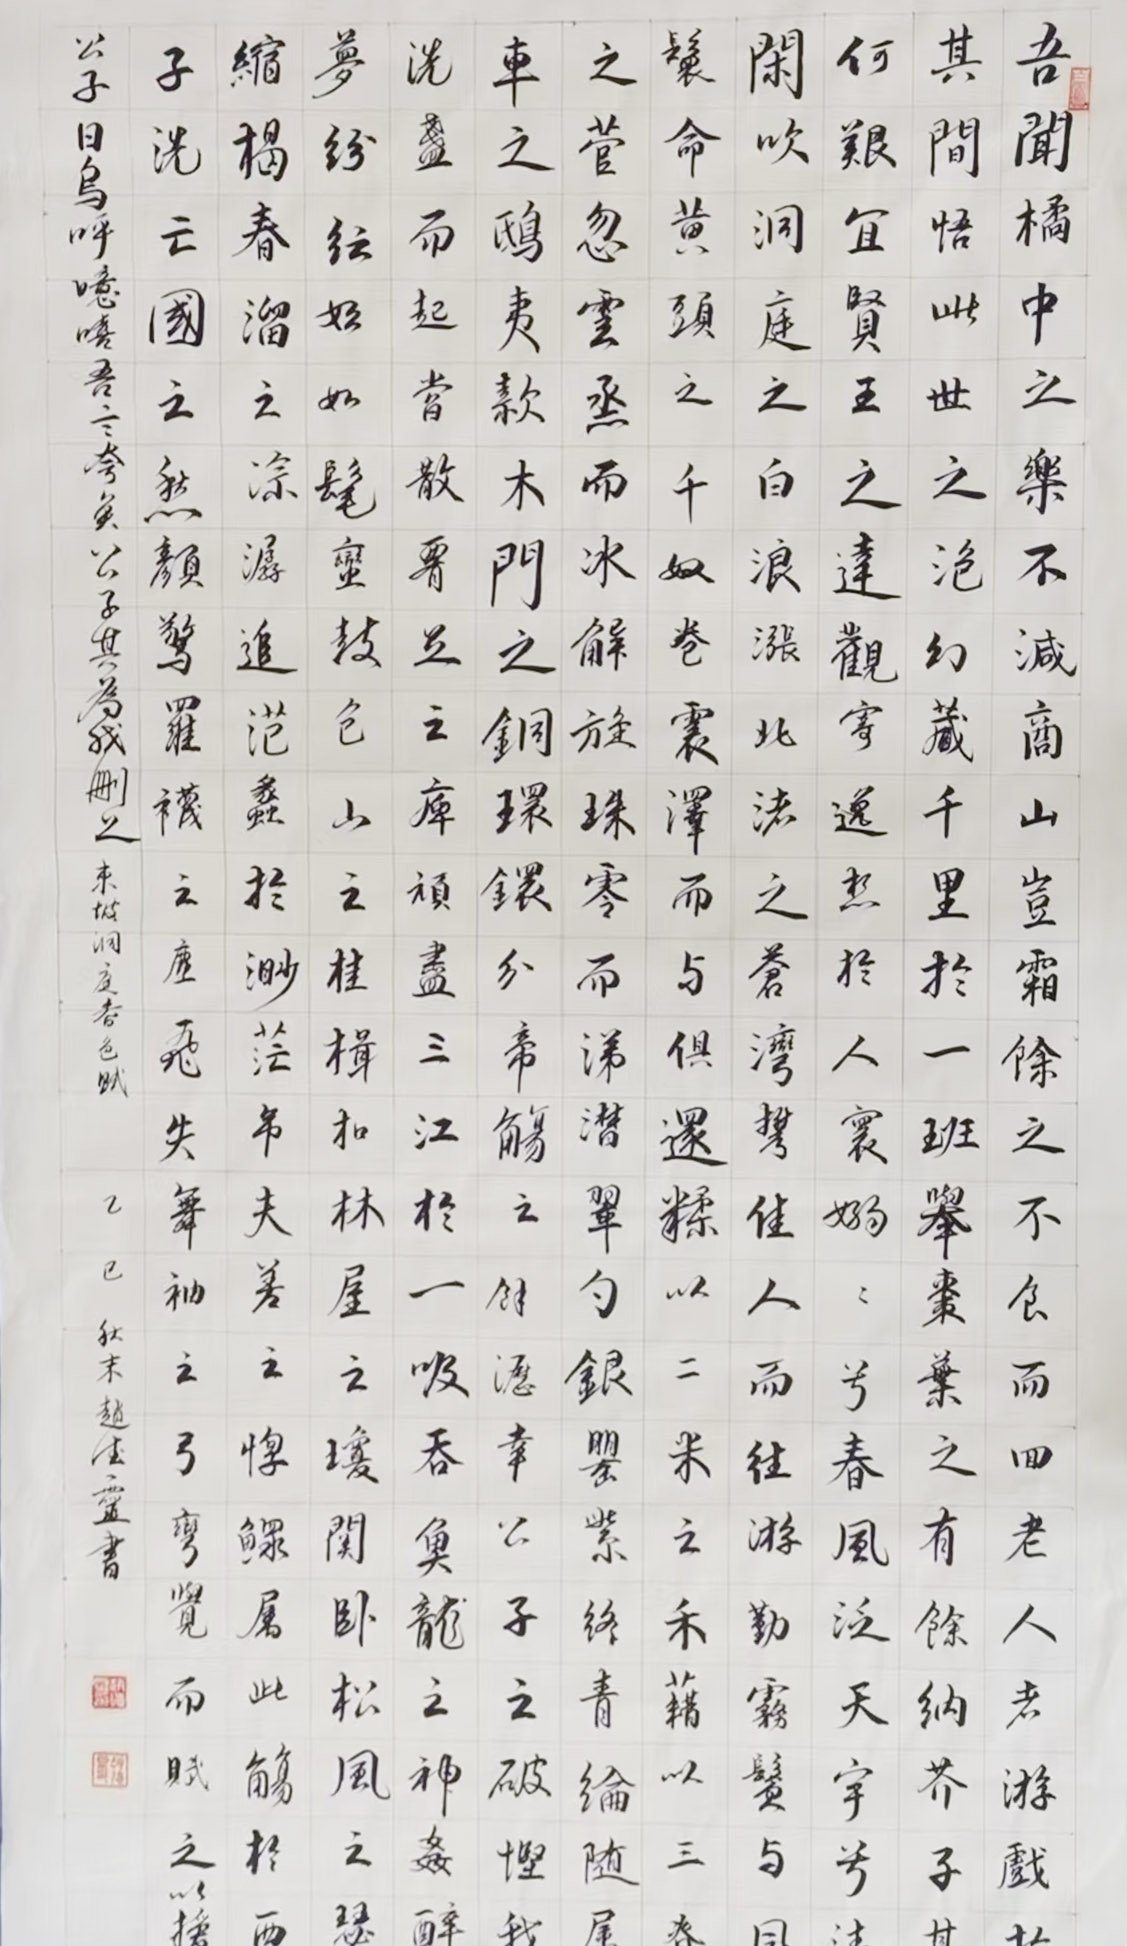 吾聞橘中之樂不減商山豈霜餘之不食而四老人者游戲於
其間悟此世之泡幻藏千里於一班舉棗葉之有餘納芥子其
何艱宜賢王之達觀寄逸想於人寰嫋〻兮春風泛天宇兮清
閑吹洞庭之白浪漲北渚之蒼灣攜佳人而往游勤霧鬢與風
鬟命黄頭之千奴卷震澤而與俱還糅以二米之禾藉以三脊
之菅忽雲烝而冰解旋珠零而涕潸翠勺銀罌紫絡青綸随屬
車之鴟夷款木門之銅環鐶分帝觴之餘瀝幸公子之破慳我
洗盞而起嘗散腰足之痺頑盡三江於一吸吞魚龍之神姦醉
夢紛紜始如髦蠻鼓包山之桂楫扣林屋之瓊関卧松風之瑟
縮楬春溜之淙潺追范蠡於渺茫吊夫差之惸鰥屬此觴於西
子洗亡國之愁顏驚羅襪之塵飛失舞袖之弓彎覺而賦之以授
公子曰烏呼噫嘻吾言夸矣公子其為我刪之 東坡洞庭春色賦 乙巳秋末趙 書